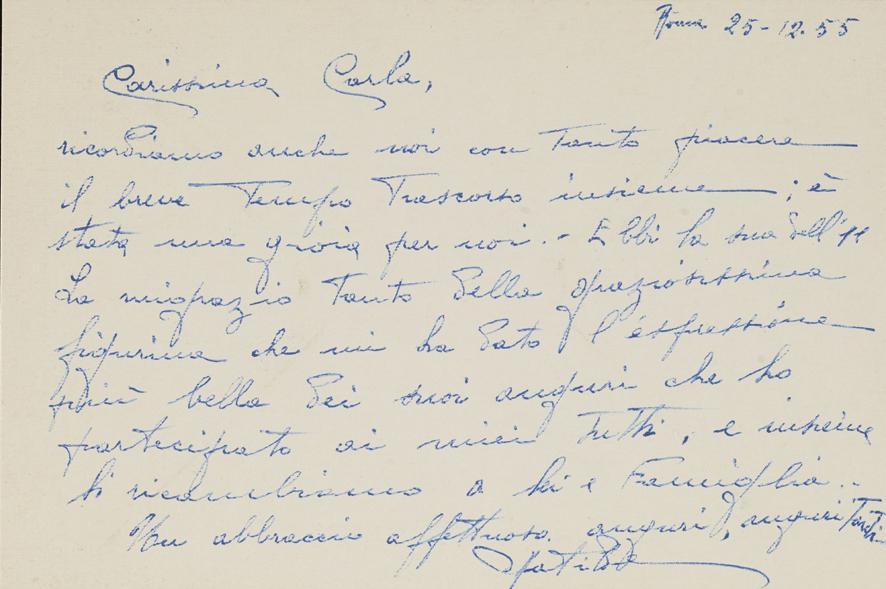 Roma 25-12.55
Carissima Carla,
ricordiamo anche noi con Tanto piacere
il breve Tempo Trascorso insieme; è
stata una gioia per noi. - Ebbi la sua dell'11
La ringrazio Tanto della graziosissima
figurina che mi ha dato l'espressione
più bella dei suoi auguri che ho
partecipato ai miei Tutti, e insieme
li ricambiamo a Lei e Famiglia..
Un abbraccio affettuoso. auguri, auguri Tanti
Matilde